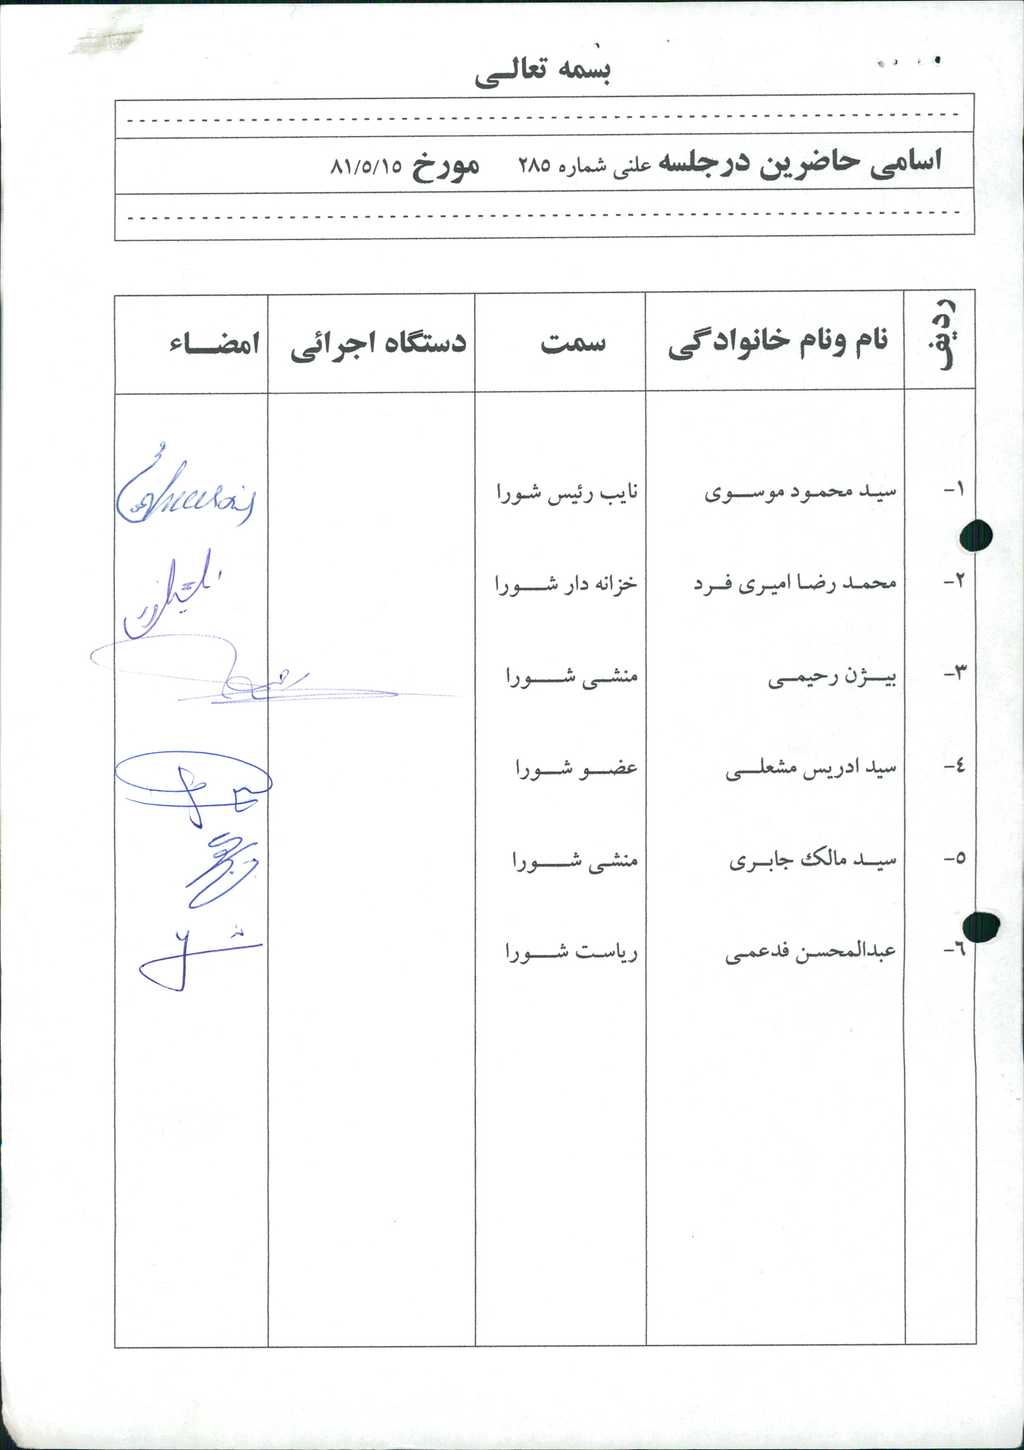 بسمه تعالی
اسامی حاضرین درجلسه علنی شماره ۲۸۵ مورخ ۸۱/۵/۱۵
ردیف نام ونام خانوادگی سمت دستگاه اجرائی امضاء
۱- سید محمود موسوی نایب رئیس شورا
۲- محمد رضا امیری فرد خزانه دار شورا
۳- بیژن رحیمی منشی شورا
۴- سید ادریس مشعلی عضو شورا
۵- سید مالک جابری منشی شورا
۶- عبدالمحسن فدعمی ریاست شورا